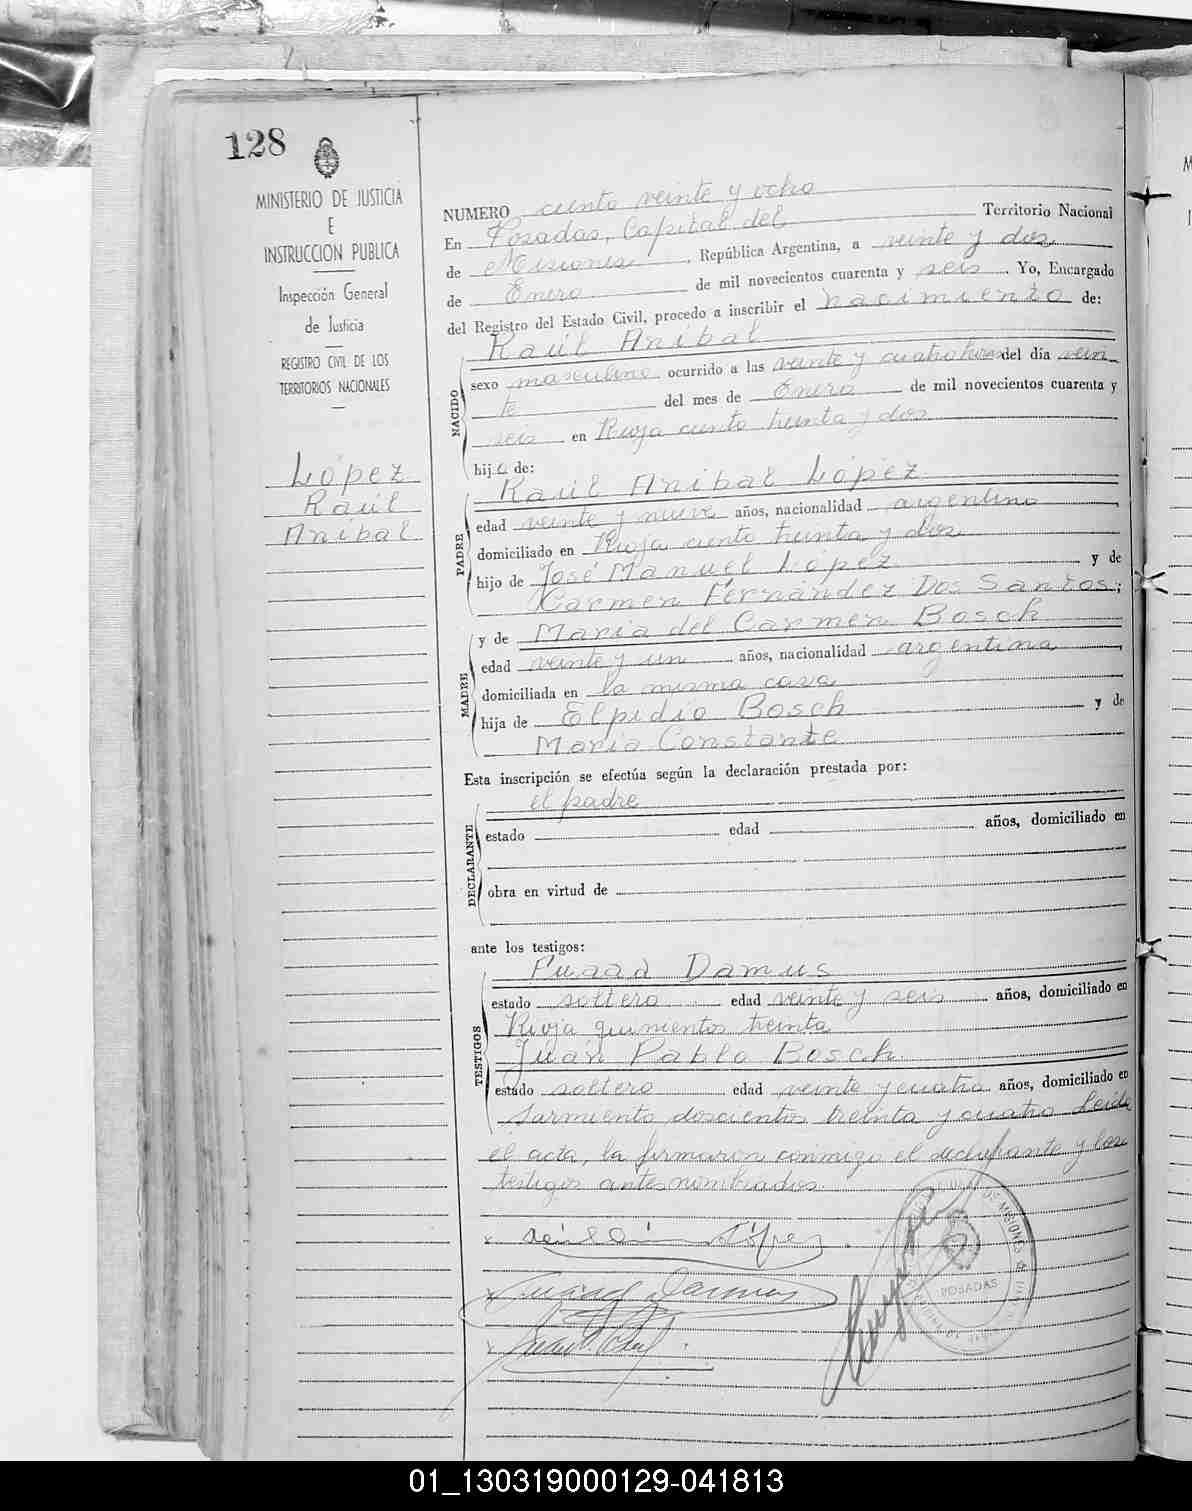 128
MINISTERIO DE JUSTICIA
E
INSTRUCCION PUBLICA
Inspección General
de Justicia
REGISTRO CIVIL DE LOS
TERRITORIOS NACIONALES
López
Raúl
Anibal
NUMERO ciento veinte y ocho
En Posadas, Capital del Territorio Nacional
de Misiones, República Argentina, a veinte y dos
de Enero de mil novecientos cuarenta y seis. Yo, Encargado
del Registro del Estado Civil, procedo a inscribir el nacimiento de:
NACIDO
Raúl Anibal
sexo masculino ocurrido a las veinte y cuatro horas del día vein
te del mes de Enero de mil novecientos cuarenta y
seis en Rioja ciento treinta y dos
hijo de:
PADRE
Raúl Anibal López
edad veinte y nueve años, nacionalidad argentino
domiciliado en Rioja ciento treinta y dos
hijo de José Manuel López y de
Carmen Fernández Dos Santos;
MADRE
y de Maria del Carmen Bosch
edad veinte y un años, nacionalidad argentina,
domiciliada en la misma casa
hija de Elpidio Bosch y de
Maria Constante
Esta inscripción se efectúa según la declaración prestada por:
DECLARANTE
el padre
estado edad años, domiciliado en
obra en virtud de
ante los testigos:
TESTIGOS
Fuaad Damus
estado soltero edad veinte y seis años, domiciliado en
Rioja quinientos treinta
Juan Pablo Bosch
estado soltero edad veinte y cuatro años, domiciliado en
Sarmiento doscientos treinta y cuatro Leida
el acta, la firmaron conmigo el declarante y los
testigos antes nombrados.
POSADAS
01_130319000129-041813